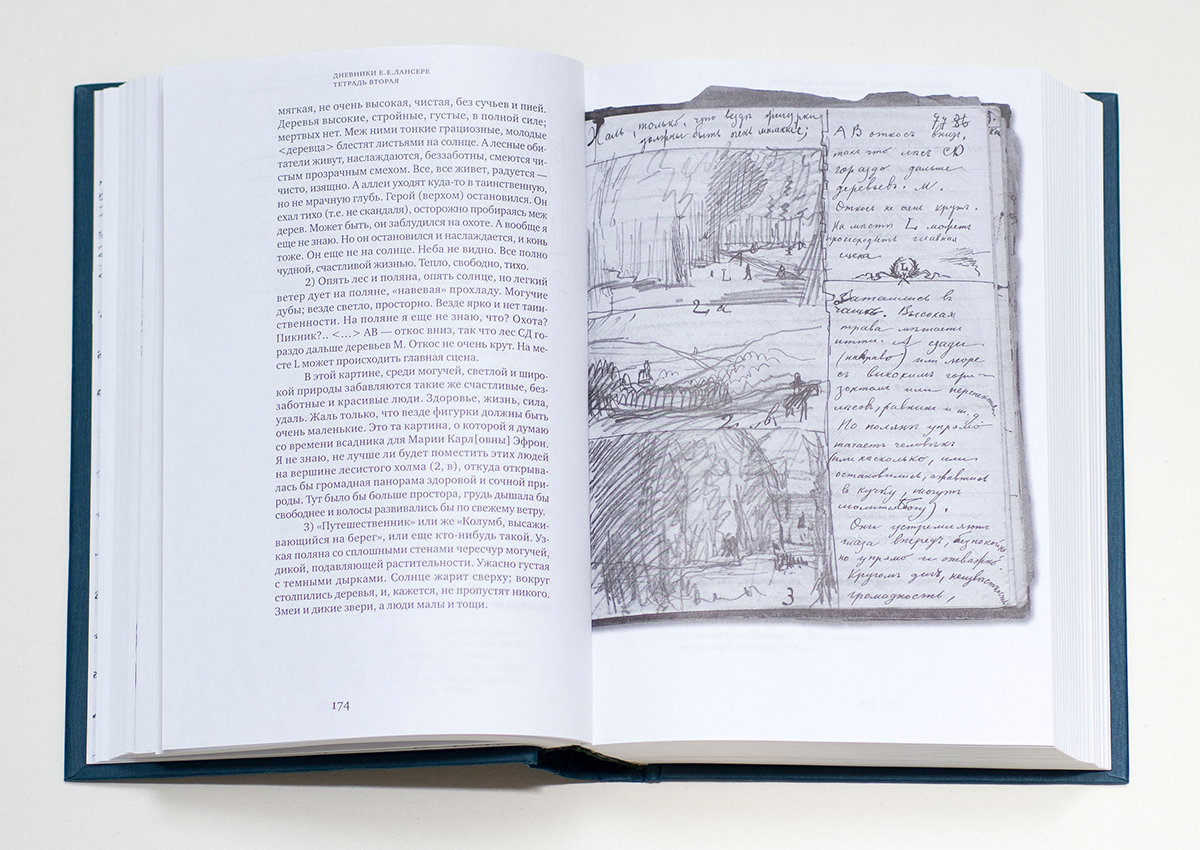 ДНЕВНИКИ Е.Е.ЛАНСЕРЕ
ТЕТРАДЬ ВТОРАЯ
мягкая, не очень высокая, чистая, без сучьев и пней.
Деревья высокие, стройные, густые, в полной силе;
мертвых нет. Меж ними тонкие грациозные, молодые
<деревца> блестят листьями на солнце. А лесные оби-
татели живут, наслаждаются, беззаботны, смеются чи-
стым прозрачным смехом. Все, все живет, радуется —
чисто, изящно. А аллеи уходят куда-то в таинственную,
но не мрачную глубь. Герой (верхом) остановился. Он
ехал тихо (т.е. не скандаля), осторожно пробираясь меж
дерев. Может быть, он заблудился на охоте. А вообще я
еще не знаю. Но он остановился и наслаждается, и конь
тоже. Он еще не на солнце. Неба не видно. Все полно
чудной, счастливой жизнью. Тепло, свободно, тихо.
2) Опять лес и поляна, опять солнце, но легкий
ветер дует на поляне, «навевая» прохладу. Могучие
дубы; везде светло, просторно. Везде ярко и нет таин-
ственности. На поляне я еще не знаю, что? Охота?
Пикник?.. <...> АВ — откос вниз, так что лес СД го-
раздо дальше деревьев М. Откос не очень крут. На ме-
сте L может происходить главная сцена.
В этой картине, среди могучей, светлой и широ-
кой природы забавляются такие же счастливые, без-
заботные и красивые люди. Здоровье, жизнь, сила,
удаль. Жаль только, что везде фигурки должны быть
очень маленькие. Это та картина, о которой я думаю
со времени всадника для Марии Карл[овны] Эфрон.
Я не знаю, не лучше ли будет поместить этих людей
на вершине лесистого холма (2, в), откуда открыва-
лась бы громадная панорама здоровой и сочной при-
роды. Тут было бы больше простора, грудь дышала бы
свободнее и волосы развивались бы по свежему ветру.
3) «Путешественник» или же «Колумб, высажи-
вающийся на берег», или еще кто-нибудь такой. Уз-
кая поляна со сплошными стенами чересчур могучей,
дикой, подавляющей растительности. Ужасно густая
с темными дырками. Солнце жарит сверху; вокруг
столпились деревья, и, кажется, не пропустят никого.
Змеи и дикие звери, а люди малы и тощи.
174
Жаль только, что везде фигурки
должны быть очень маленькие;
L
2 a
3
АВ откосъ внизъ,
такъ что лѣсъ СД
гораздо дальше
деревьевъ. М.
Откосъ не очень крутъ.
На мѣстѣ L можетъ
происходить главная
сцена
L
чащѣ. Высокая
трава мѣшаетъ
итти. А сзади
(направо) или море
съ высокимъ гори-
зонтомъ или
лѣсовъ, равнин и т. д
По полянѣ упрямо
шагаетъ человѣкъ
или нѣсколько, или
остановились,
въ кучку, могутъ
Они устремляютъ
глаза впередъ,
но упрямо и отважно
Кругомъ дичь,
громадность,